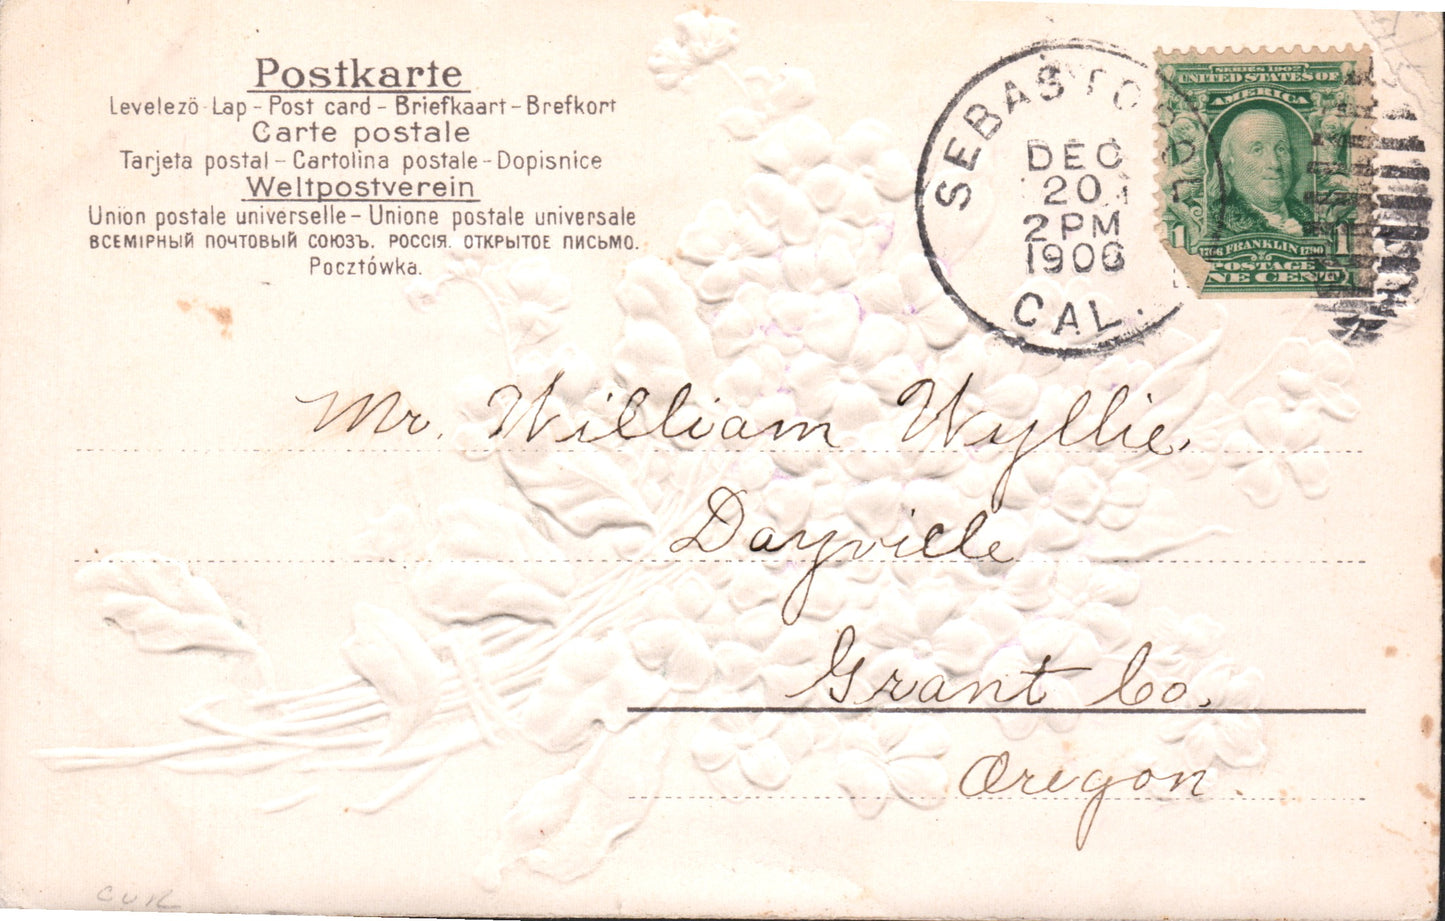 Postkarte
Levelezö-Lap – Post card – Briefkaart – Brefkort
Carte postale
Tarjeta postal – Cartolina postale – Dopisnice
Weltpostverein
Union postale universelle – Unione postale universale
ВСЕМІРНЫЙ ПОЧТОВЫЙ СОЮЗЪ. РОССІЯ. ОТКРЫТОЕ ПИСЬМО.
Pocztówka.
SEBASTOPOL
DEC
20
2 PM
1906
CAL.
SERIES 1902
UNITED STATES OF
AMERICA
1766 FRANKLIN 1790
1 1
POSTAGE
ONE CENT
Mr. William Wyllie,
Dayville
Grant Co.
Oregon.